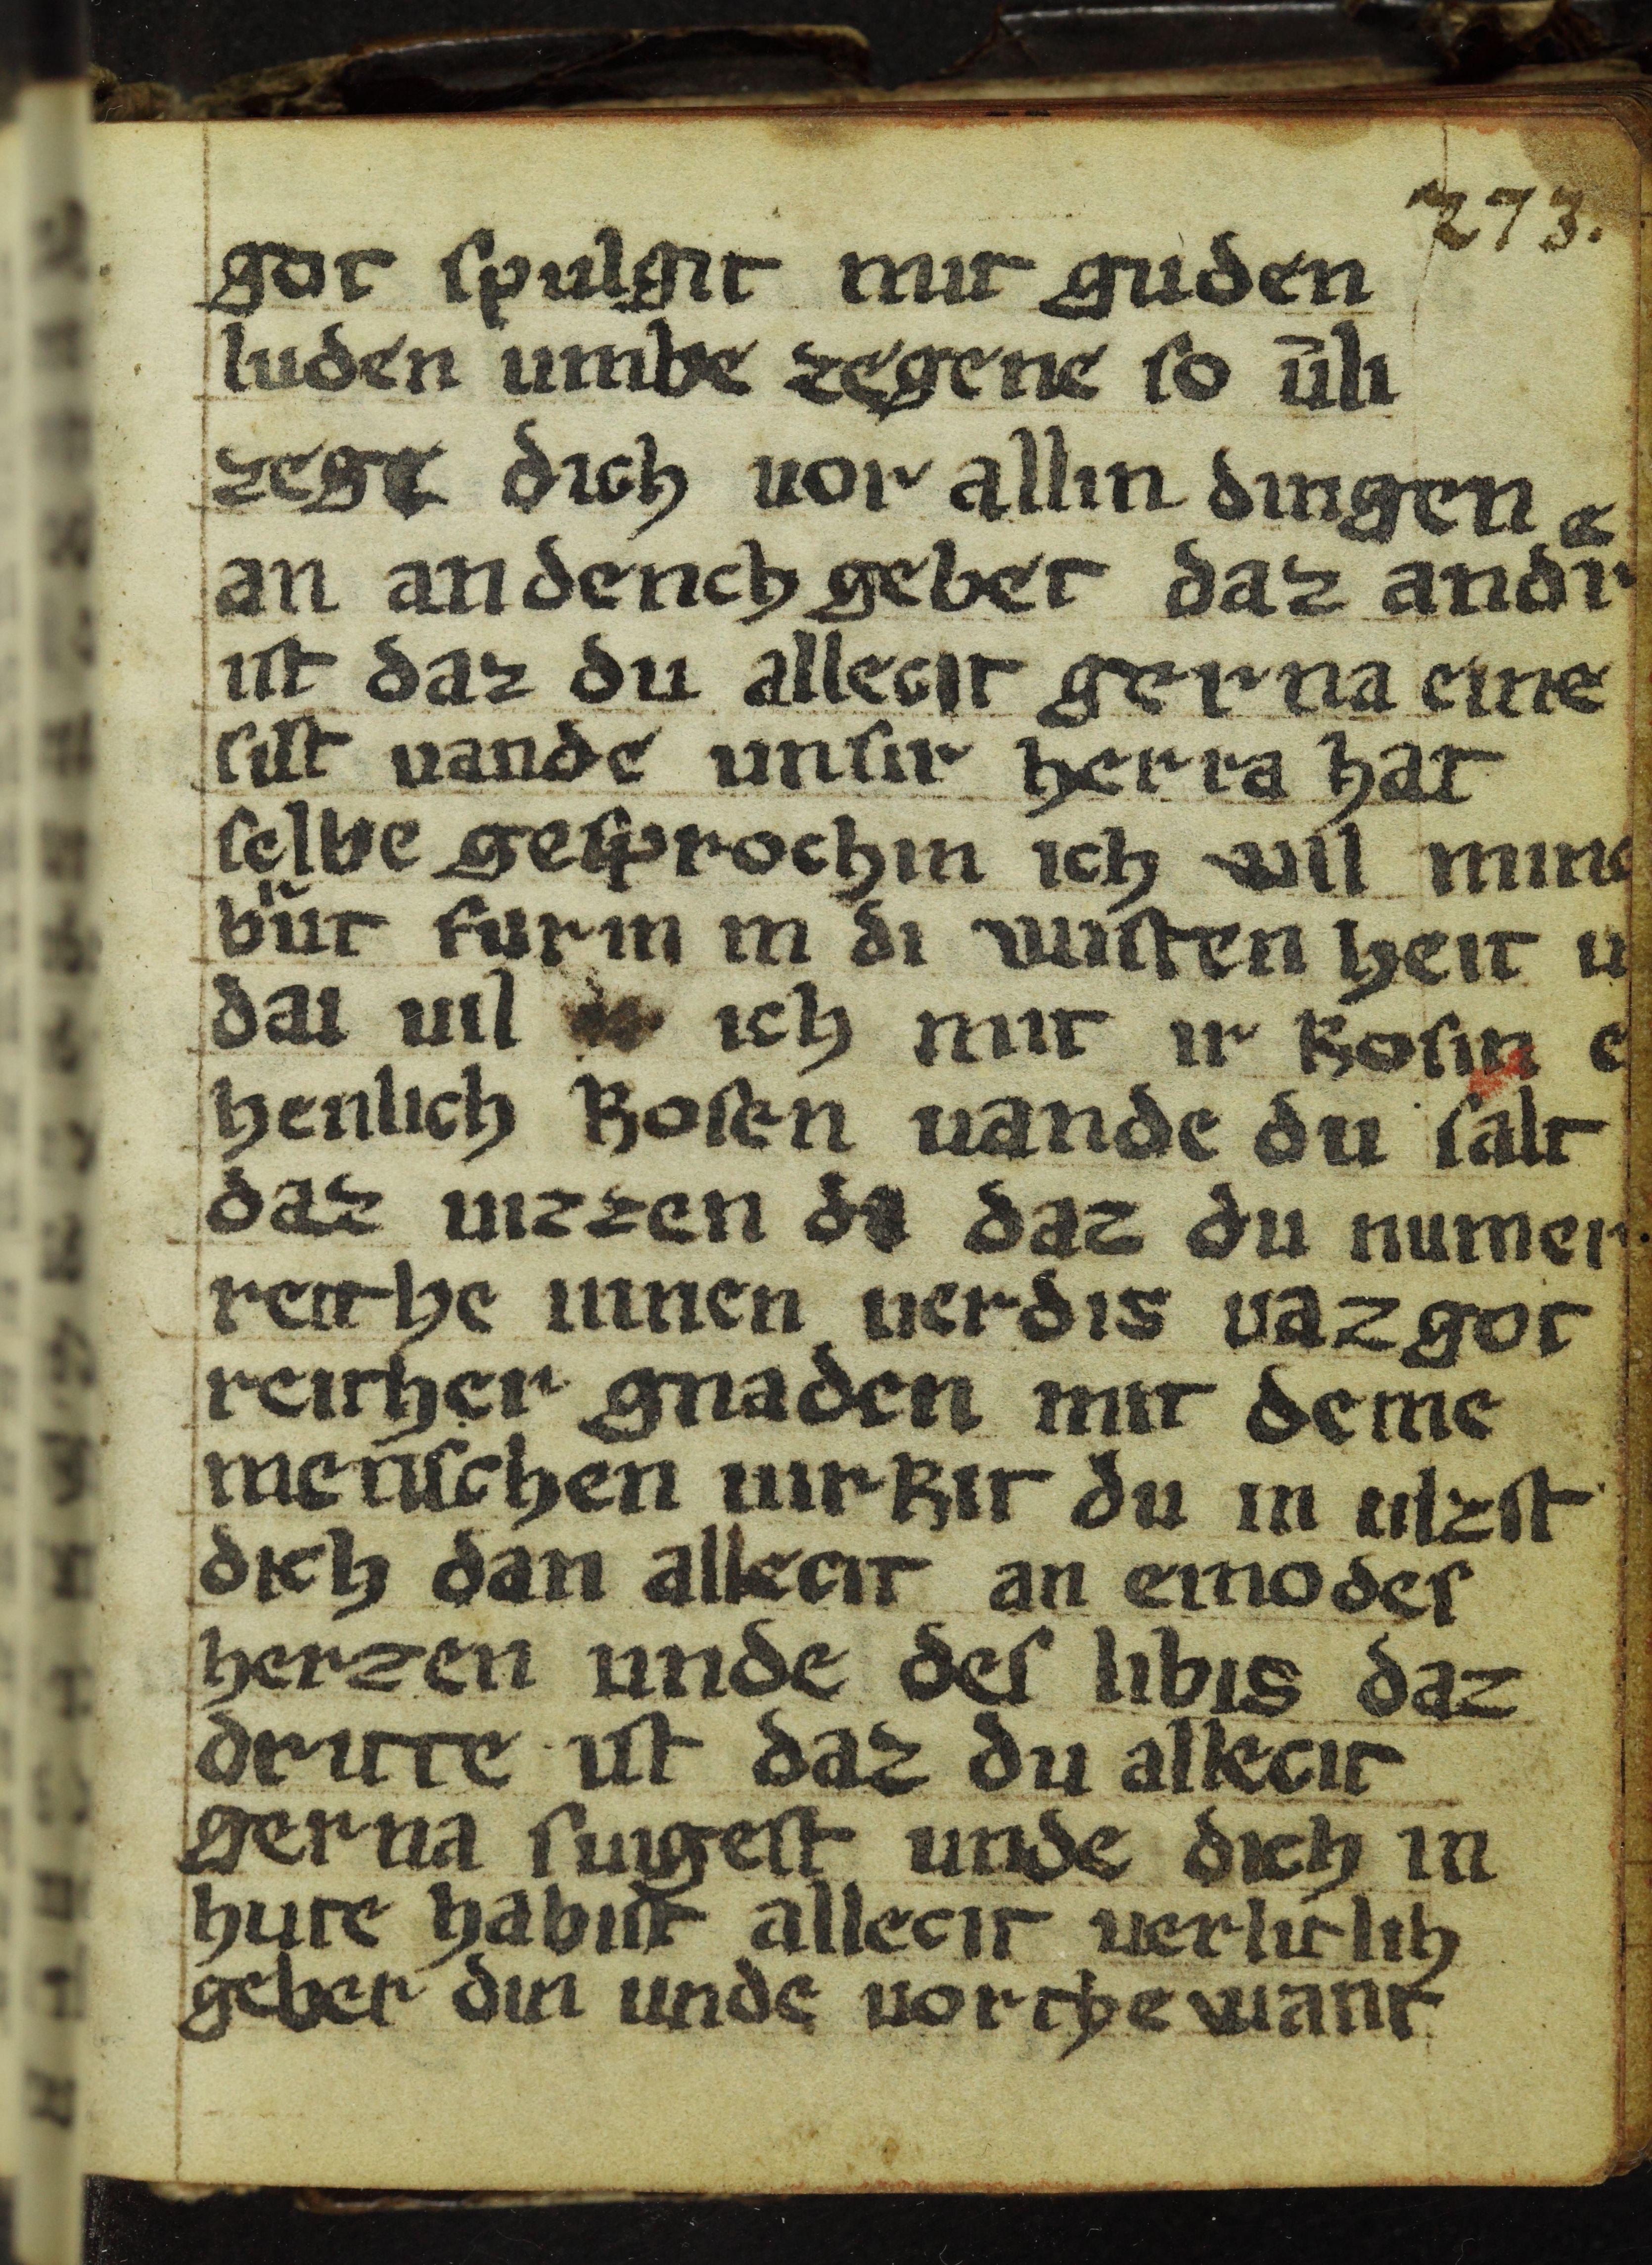 273.
got ſpulgit mit guden
luden umbe zegene ſo ūli
zege dich uor allin dingen
an andench gebet daz andir
iſt daz du allecit gerna eine
ſiſt uande unſir herra hat
ſelbe geſprochin ich wil mine
but furin in di wiſten heit u
dai uil ich mit ir koſin e
henlich koſen uande du ſalt
daz uizzen da daz du numer
reithe innen uerdis uaz got
reither gnaden mit deme
menſchen uirkit du in ulzſt
dich dan allecit an einodeſ
herzen unde deſ libis daz
dritte iſt daz du allecit
gerna ſuigeſt unde dich in
hute habiſt allecit uerlitlih
geber din unde uorthewant